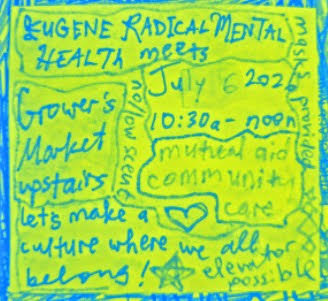 EUGENE RADICAL MENTAL
HEALTH meets
masks provided
July 6
10:30a - noon
no/low scent
Grower's
Market
upstairs
mutual aid
community
care
let's make a
culture where we all
belong!
elevator
possible